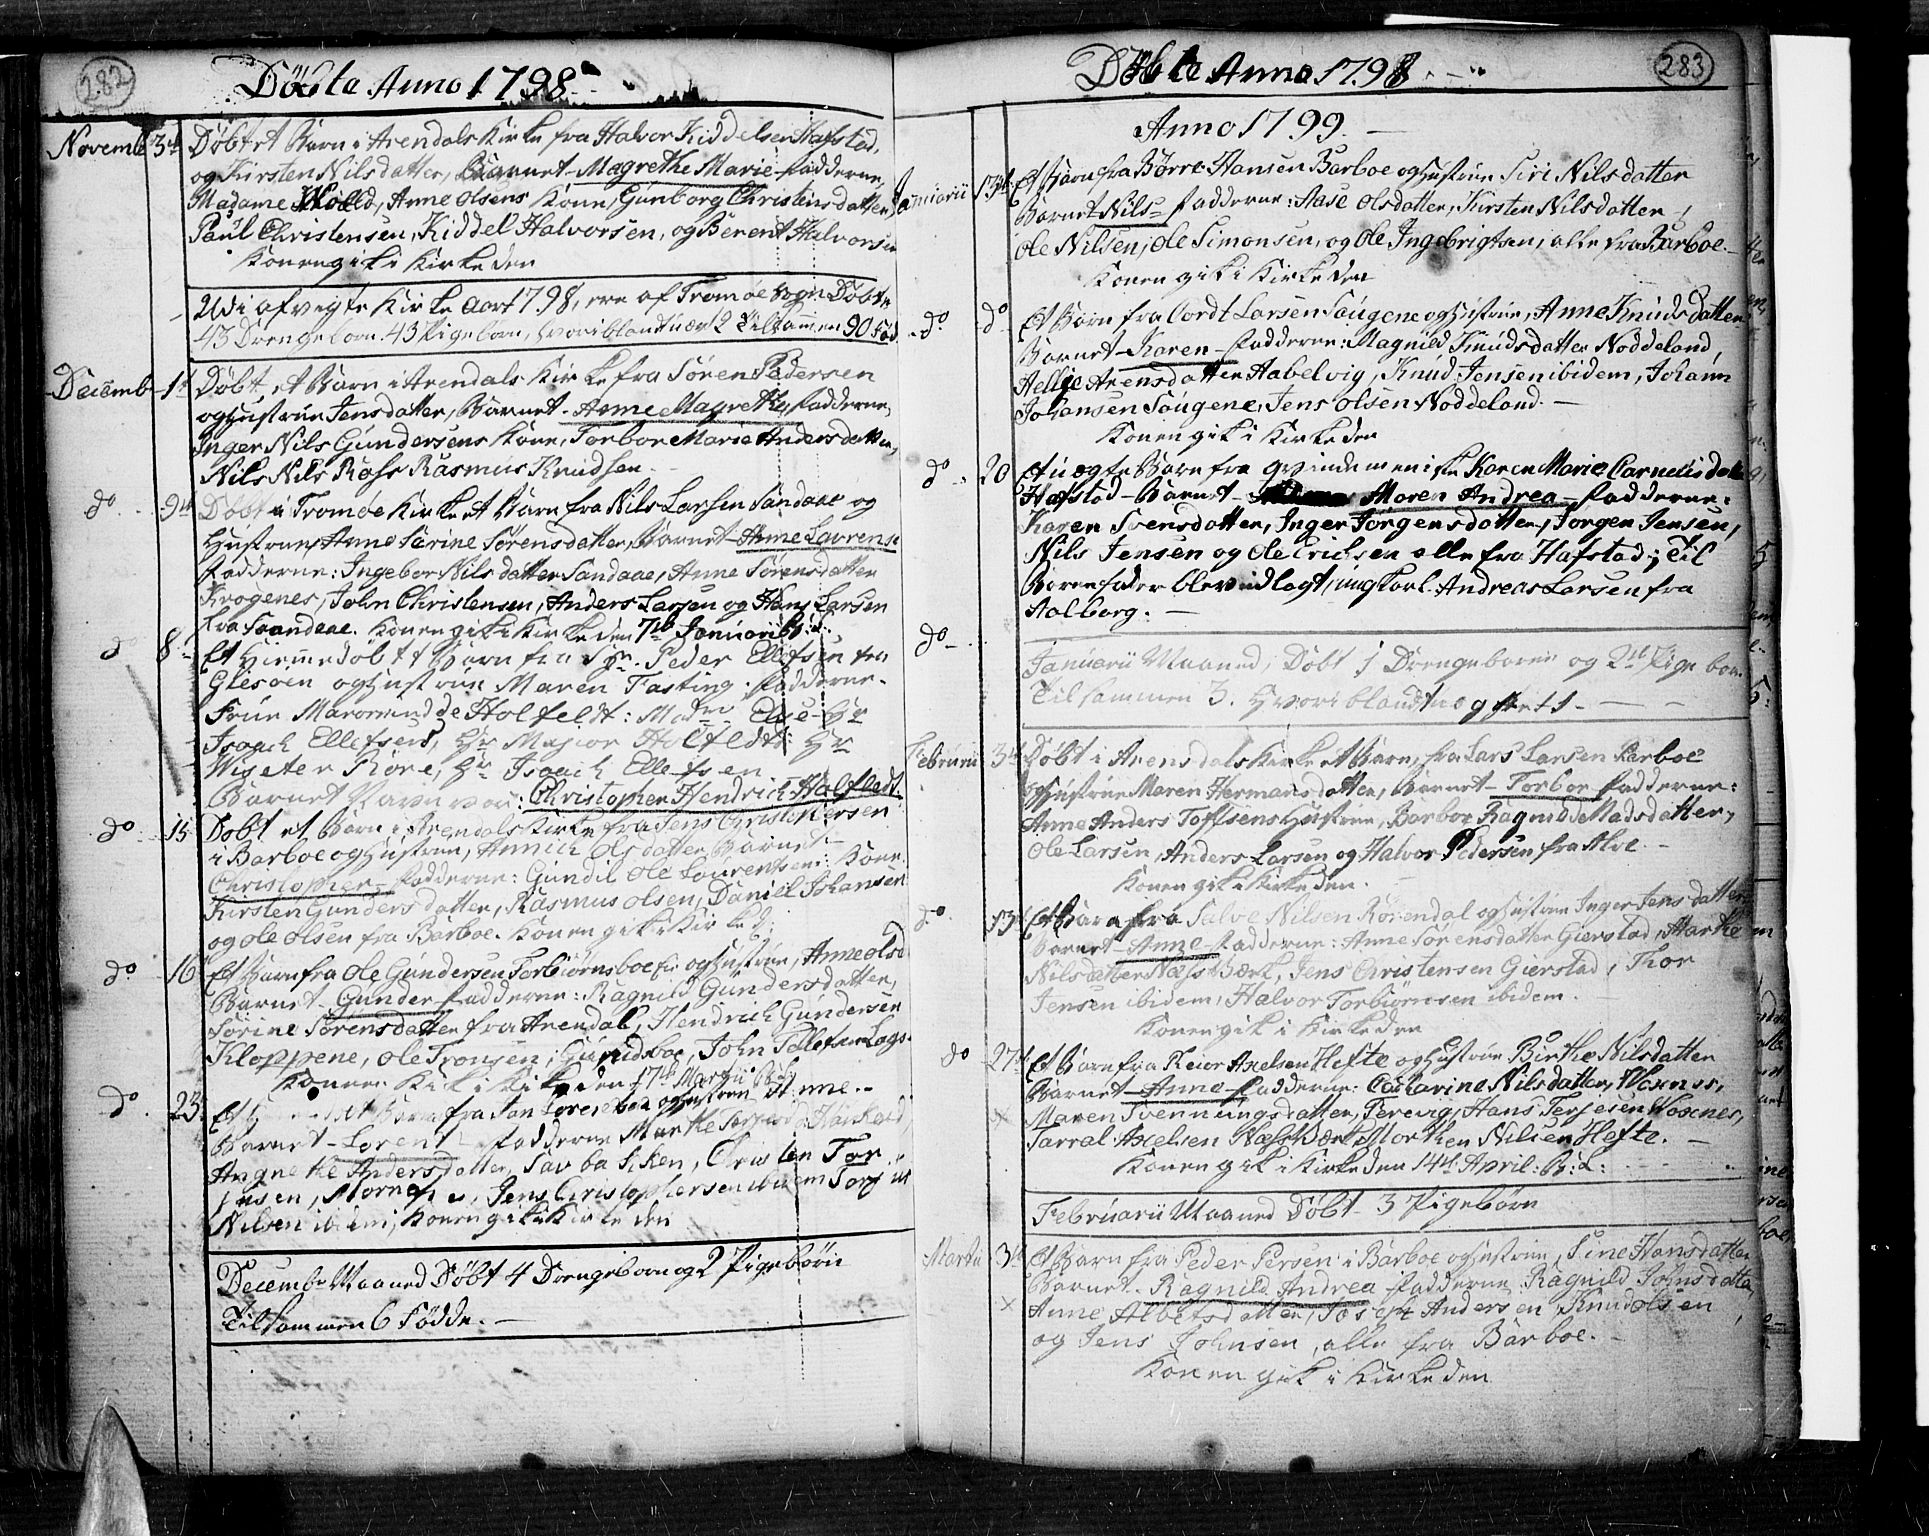 282
Döbte Anno 1798
Novemb 3de Döbt et Barn i Arendals Kirke fra Halvor Kiddelsen Hafstad,
og Kirsten Nilsdatter, Barnet Magrethe Marie fadderne,
Madame, Anne Olsens Kone, Gunborg Christensdatter
Paul Christensen, Kiddel Halvorsen, og Berent Halvorsen
Konen gik i Kirke den
Udi afvegte Kirke Aar 1798, ere af Tromöe Sogn Döbte
43 Drengeborn 43 Pigeborn, hvoriblandt 2 Tilsammen 90 Fød
Decemb 1te Döbt et Barn i Arendals Kirke fra Sören Pedersen
og Hustrue Jensdatter, Barnet Anne Magrethe, fadderne,
Inger Nils Gundersens Kone, Torbor Marie Andersdatter,
Nils Nils Ross Rasmus Knudsen
do 9de Döbt i Tromöe Kirke et Barn fra Nils Larsen Sandaae og
Hustrue Anne Sirine Sörensdatter, Barnet Anne Lavrense
fadderne: Ingebor Nilsdatter Sandaae, Anne Sörensdatter
Krogenes, John Christensen, Anders Larsen og Hans Larsen
fra Sandaae. Konen gik i Kirke den 7de Januarii
do 8 Et Hiemmedöbt Barn fra Peder Ellefsen fra
Glesöen og Hustrue Maren Fasting. fadderne.
Frue de Holfeldt: Else Hr
Isaach Ellefsens, Hr Major Holfeldt: Hr
Kore, Hr Isaach Ellefsen
Barnet Navn var: Christopher Hendrich Halfledt.
do 15 Döbt et Barn i Arendals Kirke fra Jens Christophersen
i Barboe og Hustrue, Annich Olsdatter Barnet
Christopher fadderne: Gundil Ole Laurentsens Kone
Kirsten Gundersdatter, Rasmus Olsen, Daniel Johansen
og Ole Olsen fra Barboe. Konen gik i Kirked:
do 16 Et Barn fra Ole Gundersen Torbiörnsboe og Hustrue, Anne Olsd
Barnet Gunder fadderne: Ragnild Gundersdatter,
Sörine Sörensdatter fra Arendal, Hendrich Gundersen
Kloppene, Ole Tronsen, John Tellefsen
Konen Kirke den 17de Martii
do 23 Et Barn fra Jan og Hustrue
Barnet Lorent fadderne Marthe
Angnethe Andersdatter, Christen Tor
Jens Christophersen ibidem Torj
Nilsen ibidem, Konen gik i Kirke den
Decembr Maaned Döbt 4 Drengeborn og 2 Pigebörn
Tilsammen 6 Födde.
283
Döbte Anno 1798
Anno 1799
Januarii 13de Et Barn fra Börre Hansen Barboe og Hustrue Siri Nilsdatter
Barnet Nils fadderne: Aase Olsdatter, Kirsten Nilsdatter
Ole Nilsen, Ole Simonsen, og Ole Ingebrigtsen, alle fra Barboe
Konen gik i Kirke den
do do Et Barn fra Cordt Larsen Sougene og Hustrue, Anne Knudsdatter
Barnet Karen fadderne: Magnild Knudsdatter Noddeland,
Hellje Arensdatter Aabelvig, Knud Jensen ibidem, Johann
Johansen Sougene, Jens Olsen Noddeland.
Konen gik i Kirke den
do 20 Et uægte Barn fra Qvindemeniske Karen Marie Cornelisdatt
Hafstad Barnet Maren Andrea fadderne:
Karen Svensdatter, Inger Jörgensdatter, Jorgen Jensen,
Nils Jensen og Ole Erichsen alle fra Hafstad; Til
Barnefader blev udlagt, ungkarl Andreas Larsen fra
Aalborg.
do Januarii Maaned, Döbt 1 Drengebarn og 2 Pigeborn
Tilsammen 3. Hvoriblandt uægte 1
Februrii 3de Döbt i Arendals Kirke et Barn, fra Lars Larsen Barboe
og Hustrue Maren Hermansdatter, Barnet Torbor fadderne:
Anne Anders Toftsens Hustrue, Barboe Ragnild Madsdatter,
Ole Larsen, Anders Larsen og Halvor Pedersen fra
Konen gik i Kirke den.
do 13de Et Barn fra Salve Nilsen Rörendal og Hustrue Inger Jensdatter
Barnet Anne fadderne: Anne Sörensdatter Gierstad, Marthe
Nilsdatter Næskærk, Jens Christensen Gierstad, Thor
Jensen ibidem, Halvor Torbiörnsen ibidem.
Konen gik i Kirke den
do 27de Et Barn fra Reier Axelsen Hefte og Hustrue Birthe Nilsdatter
Barnet Anne fadderne: Catharine Nilsdatter, Woxnes,
Maren Svenningsdatter, Terevig, Hans Terjesen Woxnes,
Tarral Axelsen, Morthen Nilsen Hefte.
Konen gik i Kirke den 14de April:
Februarii Maaned Döbt 3 Pigebörn
Martii 3de Et Barn fra Peder Persen i Barboe og Hustrue, Sine Hansdatter
Barnet Ragnild Andrea fadderne Ragnild Johnsdatter,
Anne Albetsdatter, Josefh Andersen, Knud Olsen,
og Jens Johnsen, alle fra Barboe.
Konen gik i Kirke den